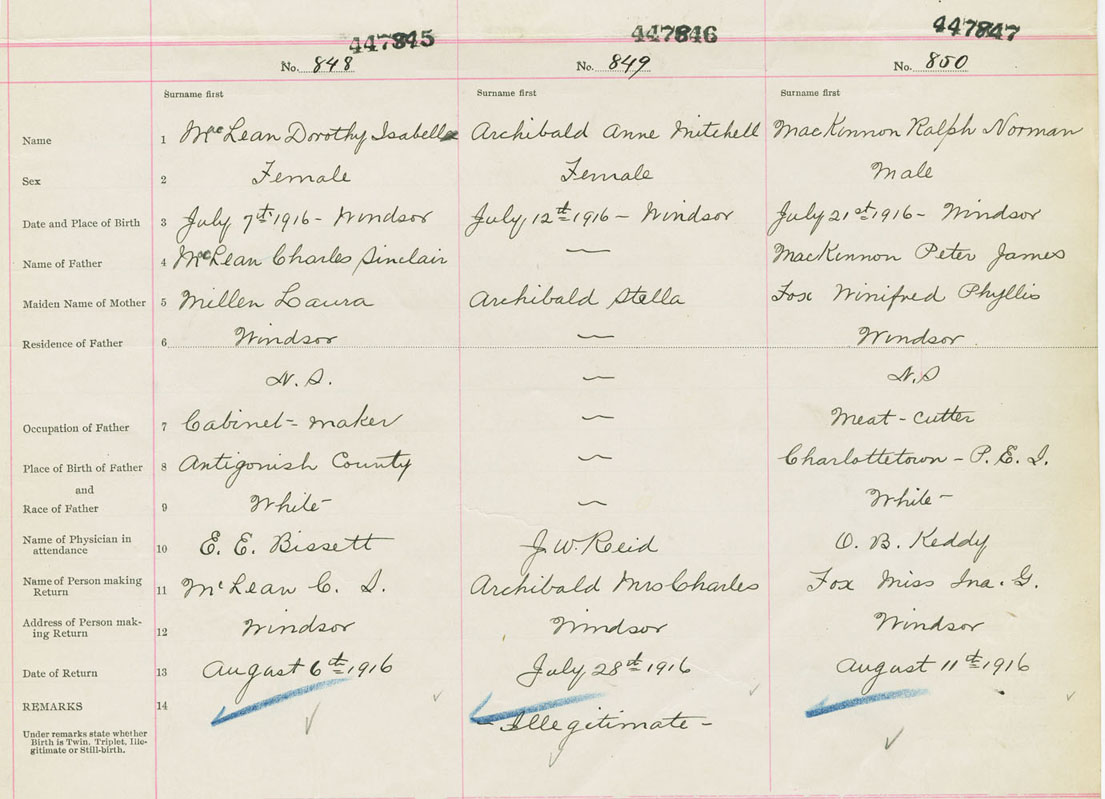 447845 447846 447847
No. 848 No. 849 No. 850
Surname first Surname first Surname first
Name 1 McLean Dorothy Isabella Archibald Anne Mitchell MacKinnon Ralph Norman
Sex 2 Female Female Male
Date and Place of Birth 3 July 7th 1916 - Windsor July 12th 1916 - Windsor July 21st 1916 - Windsor
Name of Father 4 McLean Charles Sinclair — MacKinnon Peter James
Maiden Name of Mother 5 Millen Laura Archibald Stella Fox Winifred Phyllis
Residence of Father 6 Windsor — Windsor
N.S. — N.S
Occupation of Father 7 Cabinet-maker — Meat-cutter
Place of Birth of Father 8 Antigonish County — Charlottetown - P.E.I.
and
Race of Father 9 White — White
Name of Physician in attendance 10 E. E. Bissett J. W. Reid O. B. Keddy
Name of Person making Return 11 McLean C. S. Archibald Mrs Charles Fox Miss Ina. G.
Address of Person making Return 12 Windsor Windsor Windsor
Date of Return 13 August 6th 1916 July 28th 1916 August 11th 1916
REMARKS 14
- Illegitimate -
Under remarks state whether
Birth is Twin, Triplet, Ille-
gitimate or Still-birth.